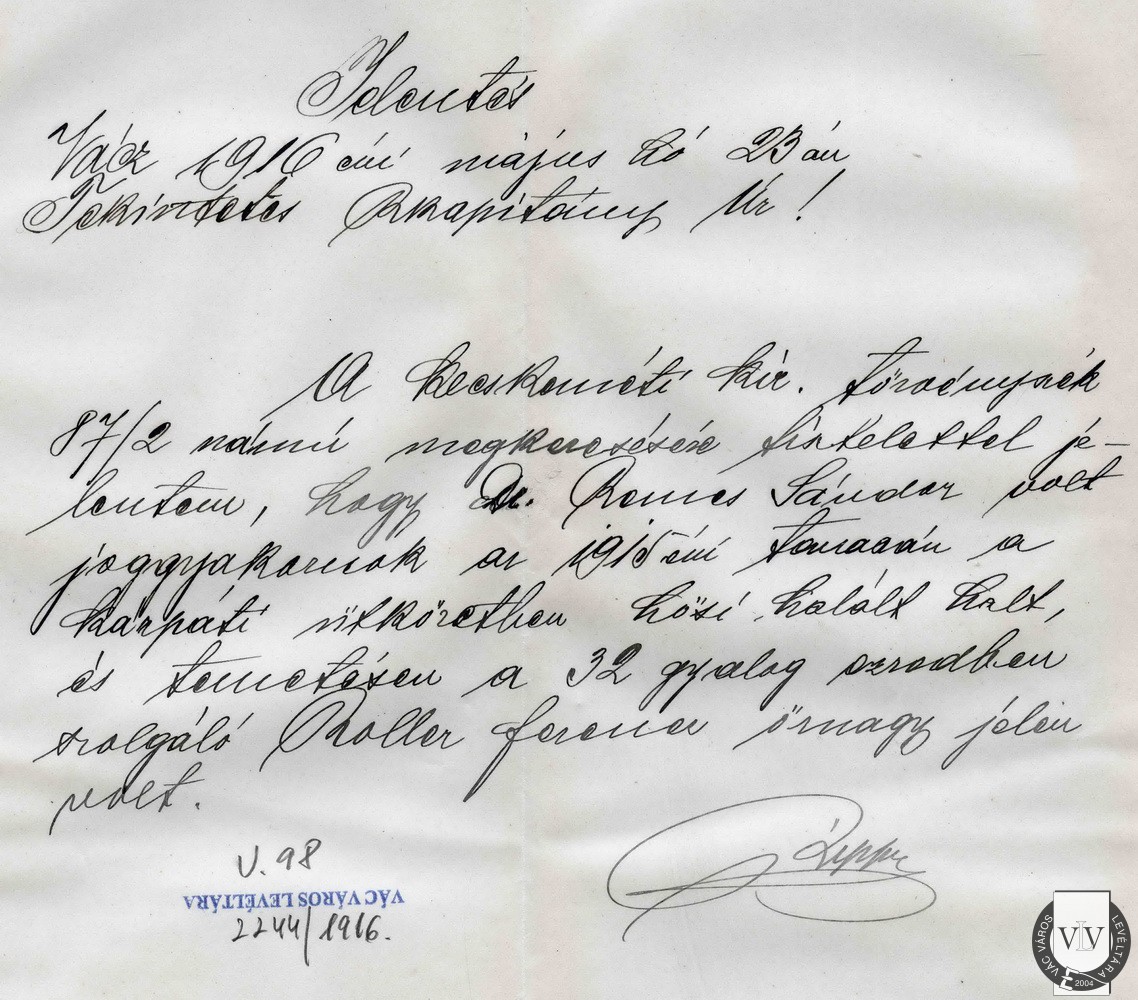 Jelentés
Vácz 1916 évi május hó 23 án
Tekintetes Rkapitány Úr!
A kecskeméti kir. törvényszék
87/2 számú megkeresésére tisztelettel je-
lentem, hogy Dr. Remes Sándor volt
joggyakornok az 1915 évi tavaszán a
kárpáti ütközetben hősi halált halt,
és temetésen a 32 gyalog ezredben
szolgáló Roller ferencz őrnagy jélen
volt.
V. 98
VÁC VÁROS LEVÉLTÁRA
2244/1916.
VÁC VÁROS LEVÉLTÁRA
VLV
2004